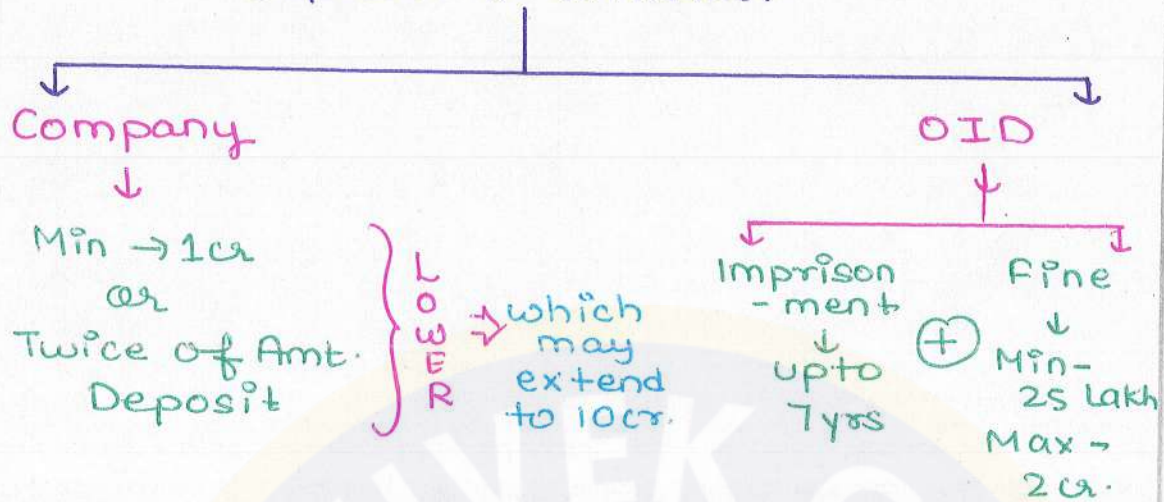 Company
OID
Min → 1cr
or
Twice of Amt.
Deposit
LOWER
which
may
extend
to 10cr.
Imprison
-ment
upto
7yrs
Fine
Min-
25 Lakh
Max →
2 cr.